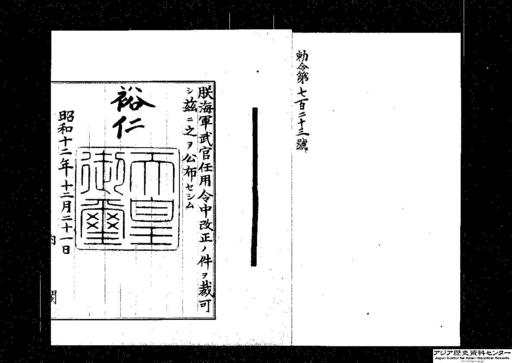 勅令第七百二十三號
朕海軍武官任用令中改正ノ件ヲ裁可
シ茲ニ之ヲ公布セシム
裕仁
天皇御璽
昭和十二年十二月二十一日
内閣
アジア歴史資料センター
Japan Center for Asian Historical Records